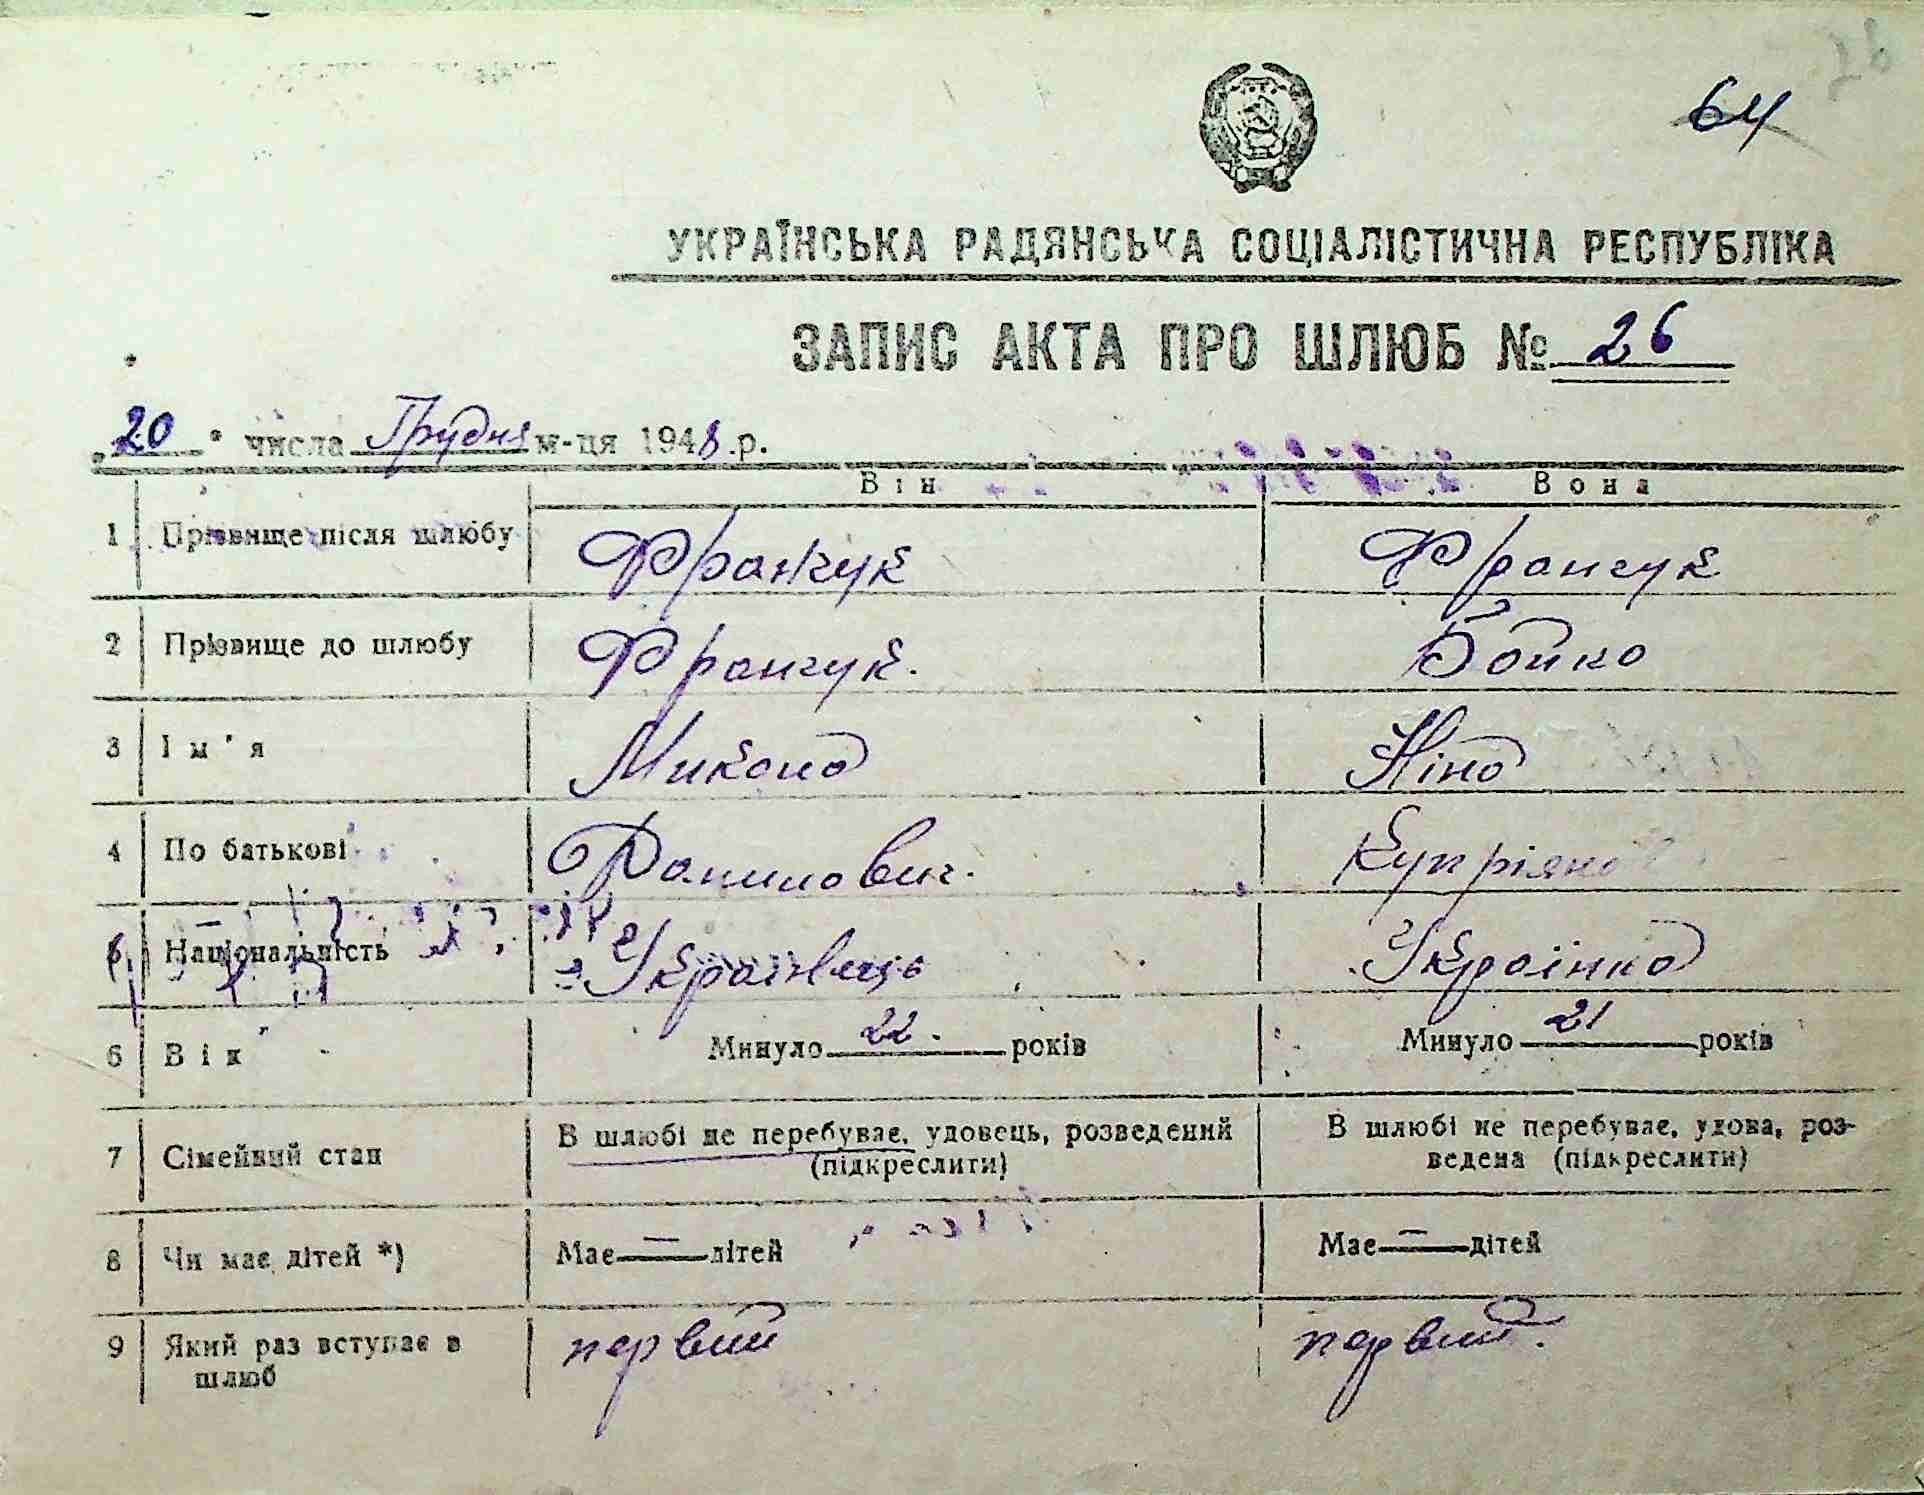 64
УКРАЇНСЬКА РАДЯНСЬКА СОЦІАЛІСТИЧНА РЕСПУБЛІКА
ЗАПИС АКТА ПРО ШЛЮБ № 26
„20" числа Грудня м-ця 1948 р.
Він Вона
1 Прізвище після шлюбу Франчук Франчук
2 Прізвище до шлюбу Франчук. Бойко
3 Ім'я Микола Ніна
4 По батькові Данилович. Купріяно
5 Національність Українець Українка
6 Вік Минуло 22. років Минуло 21 років
7 Сімейний стан В шлюбі не перебуває, удовець, розведений (підкреслити) В шлюбі не перебуває, удова, роз-
ведена (підкреслити)
8 Чи має дітей *) Має — дітей Має — дітей
9 Який раз вступає в шлюб первий первий.